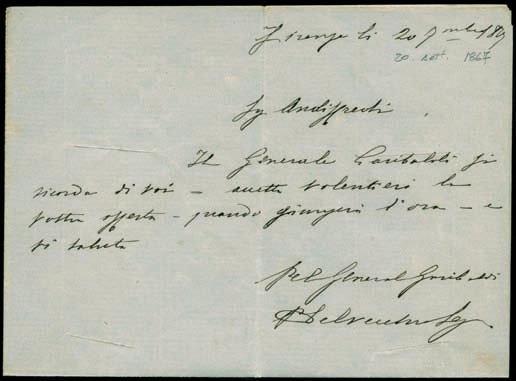 Firenze li 20 7mbre 1867
20. sett. 1867
Sg Andiffredi
Il Generale Garibaldi si
ricorda di voi – accetta volentieri la
vostra offerta – quando giungerà l'ora – e
vi saluta
Pel General Garibaldi